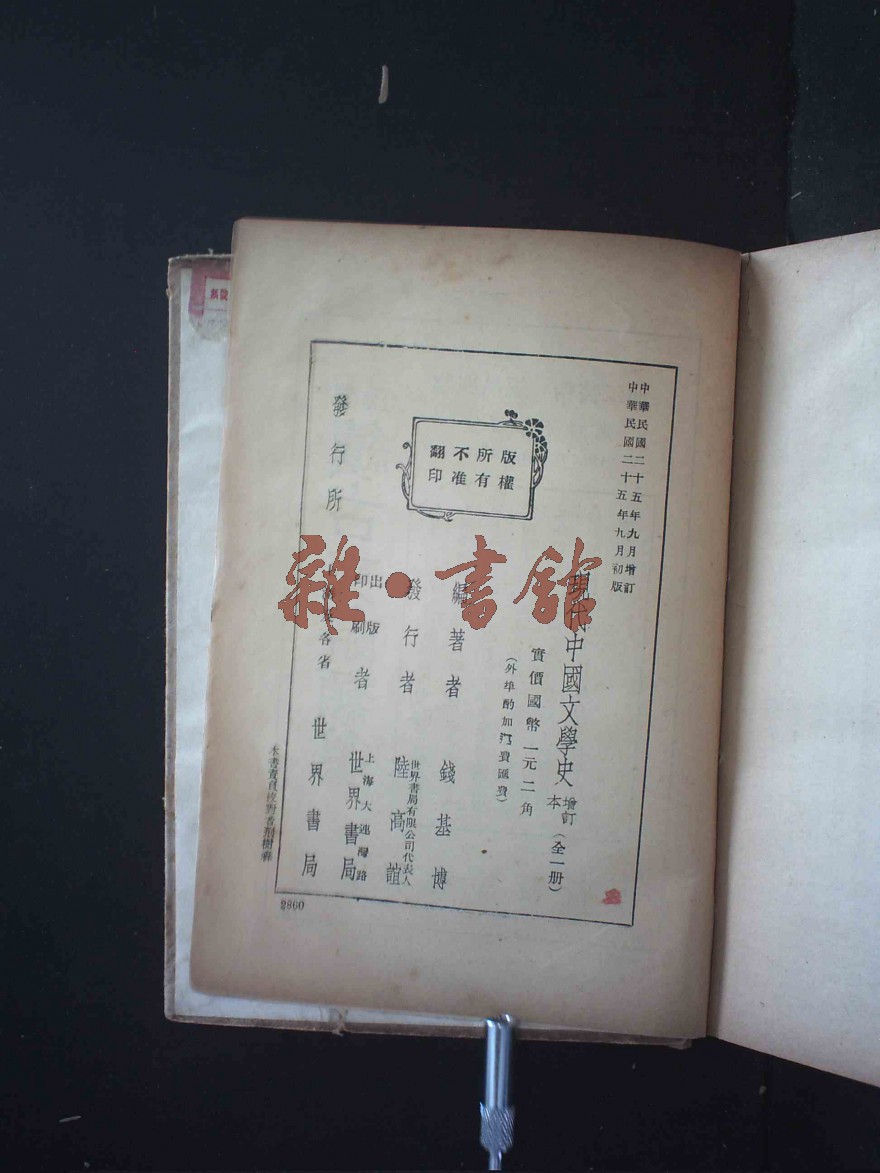 中華民國二十五年九月增訂
中華民國二十五年九月初版
現代中國文學史 增訂本 (全一册)
實價國幣一元二角
(外埠酌加 費匯費)
版權所有
不准翻印
編著者 錢基博
發行者 世界書局有限公司代表人 陸高誼
出版印刷者 上海大連灣路 世界書局
發行所 各省 世界書局
本書責任校對者
2860
雜·書館